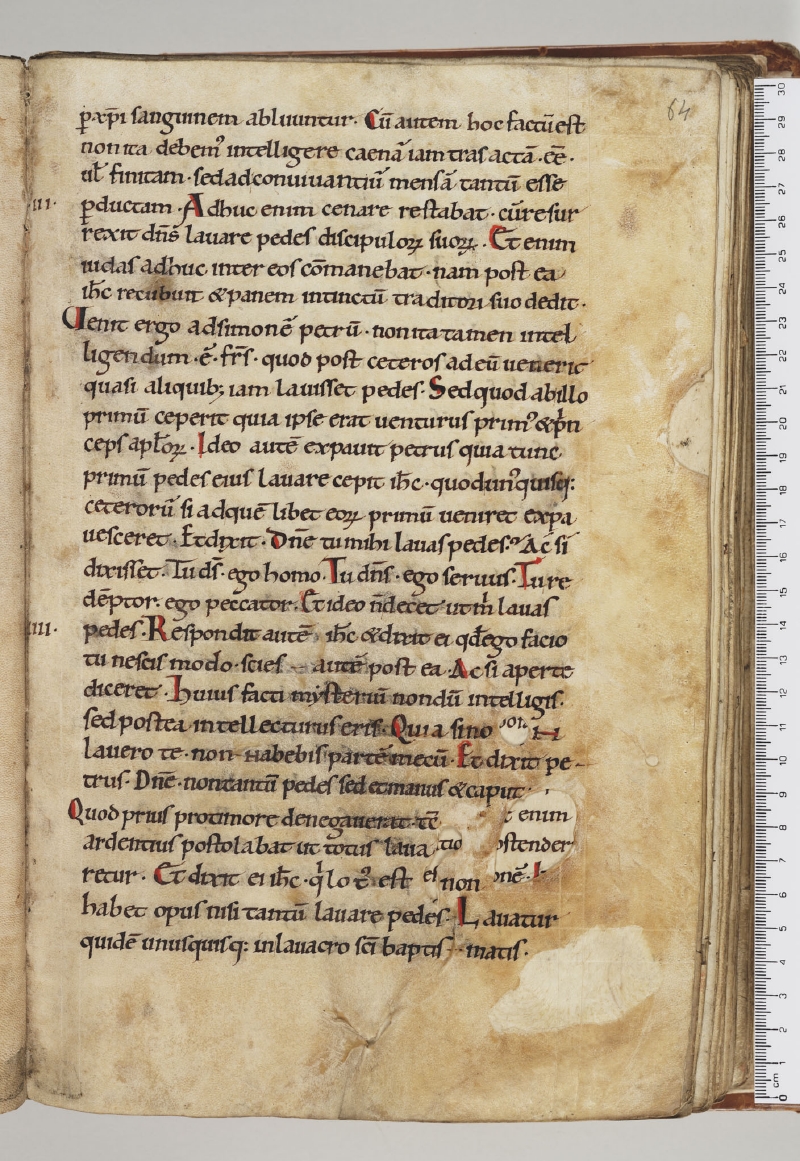 64
ꝑ xp̄i sanguinem abluuntur. Cū autem hoc factū est
non ita debem᷒ intelligere caenā iam trasactā. eē.
ul̄ finitam. sed ad conuiuantiū mensā tantū esse
.III. ꝑductam. Adhuc enim cenare restabat. cū resur
rexit dn̄s lauare pedes discipuloꝝ suoꝝ. Et enim
iudas adhuc inter eos cōmanebat. nam post ea
ih̄c recubuit & panem intinctū traditori suo dedit.
Uenit ergo ad simonē petrū. non ita tamen intel
ligendum. ē. fr̄s. quod post ceteros ad eū uenerit
quasi aliquib; iam lauisset pedes. Sed quod ab illo
primū ceperit quia ipse erat uenturus prim᷒ & p̄n
ceps apl̄oꝝ. Ideo autē expauit petrus quia tunc
primū pedes eius lauare cepit ih̄c. quod un᷒quisq:
ceterorū si ad quē libet eoꝝ primū ueniret expa
uesceret. Et dixit. Dn̄e tu mihi lauas pedes? Ac si
dixisset. Tu ds̄. ego homo. Tu dn̄s. ego seruus. Tu re
dēptor. ego peccator. Et ideo n̄ decet ut m̄ lauas
.IIII. pedes. Respondit autē ih̄c & dixit ei qd̄ ego facio
tu nescis modo. scies autē post ea. Ac si aperte
diceret. Huius facti mysteriū nondū intelligis.
sed postea intellecturus eris. Quia si no
lauero te. non habebis partē mecū. Et dixit pe-
trus. Dn̄e. non tantū pedes sed et manus & caput
Quod prius pro timore denegauerat enim
ardentius postolabat ut totus laua ostender
retur. Et dixit ei ih̄c. q̄ lot᷒ est non
habet opus nisi tantū lauare pedes. Lauatur
quidē unusquisq: in lauacro sc̄i baptis-matis.